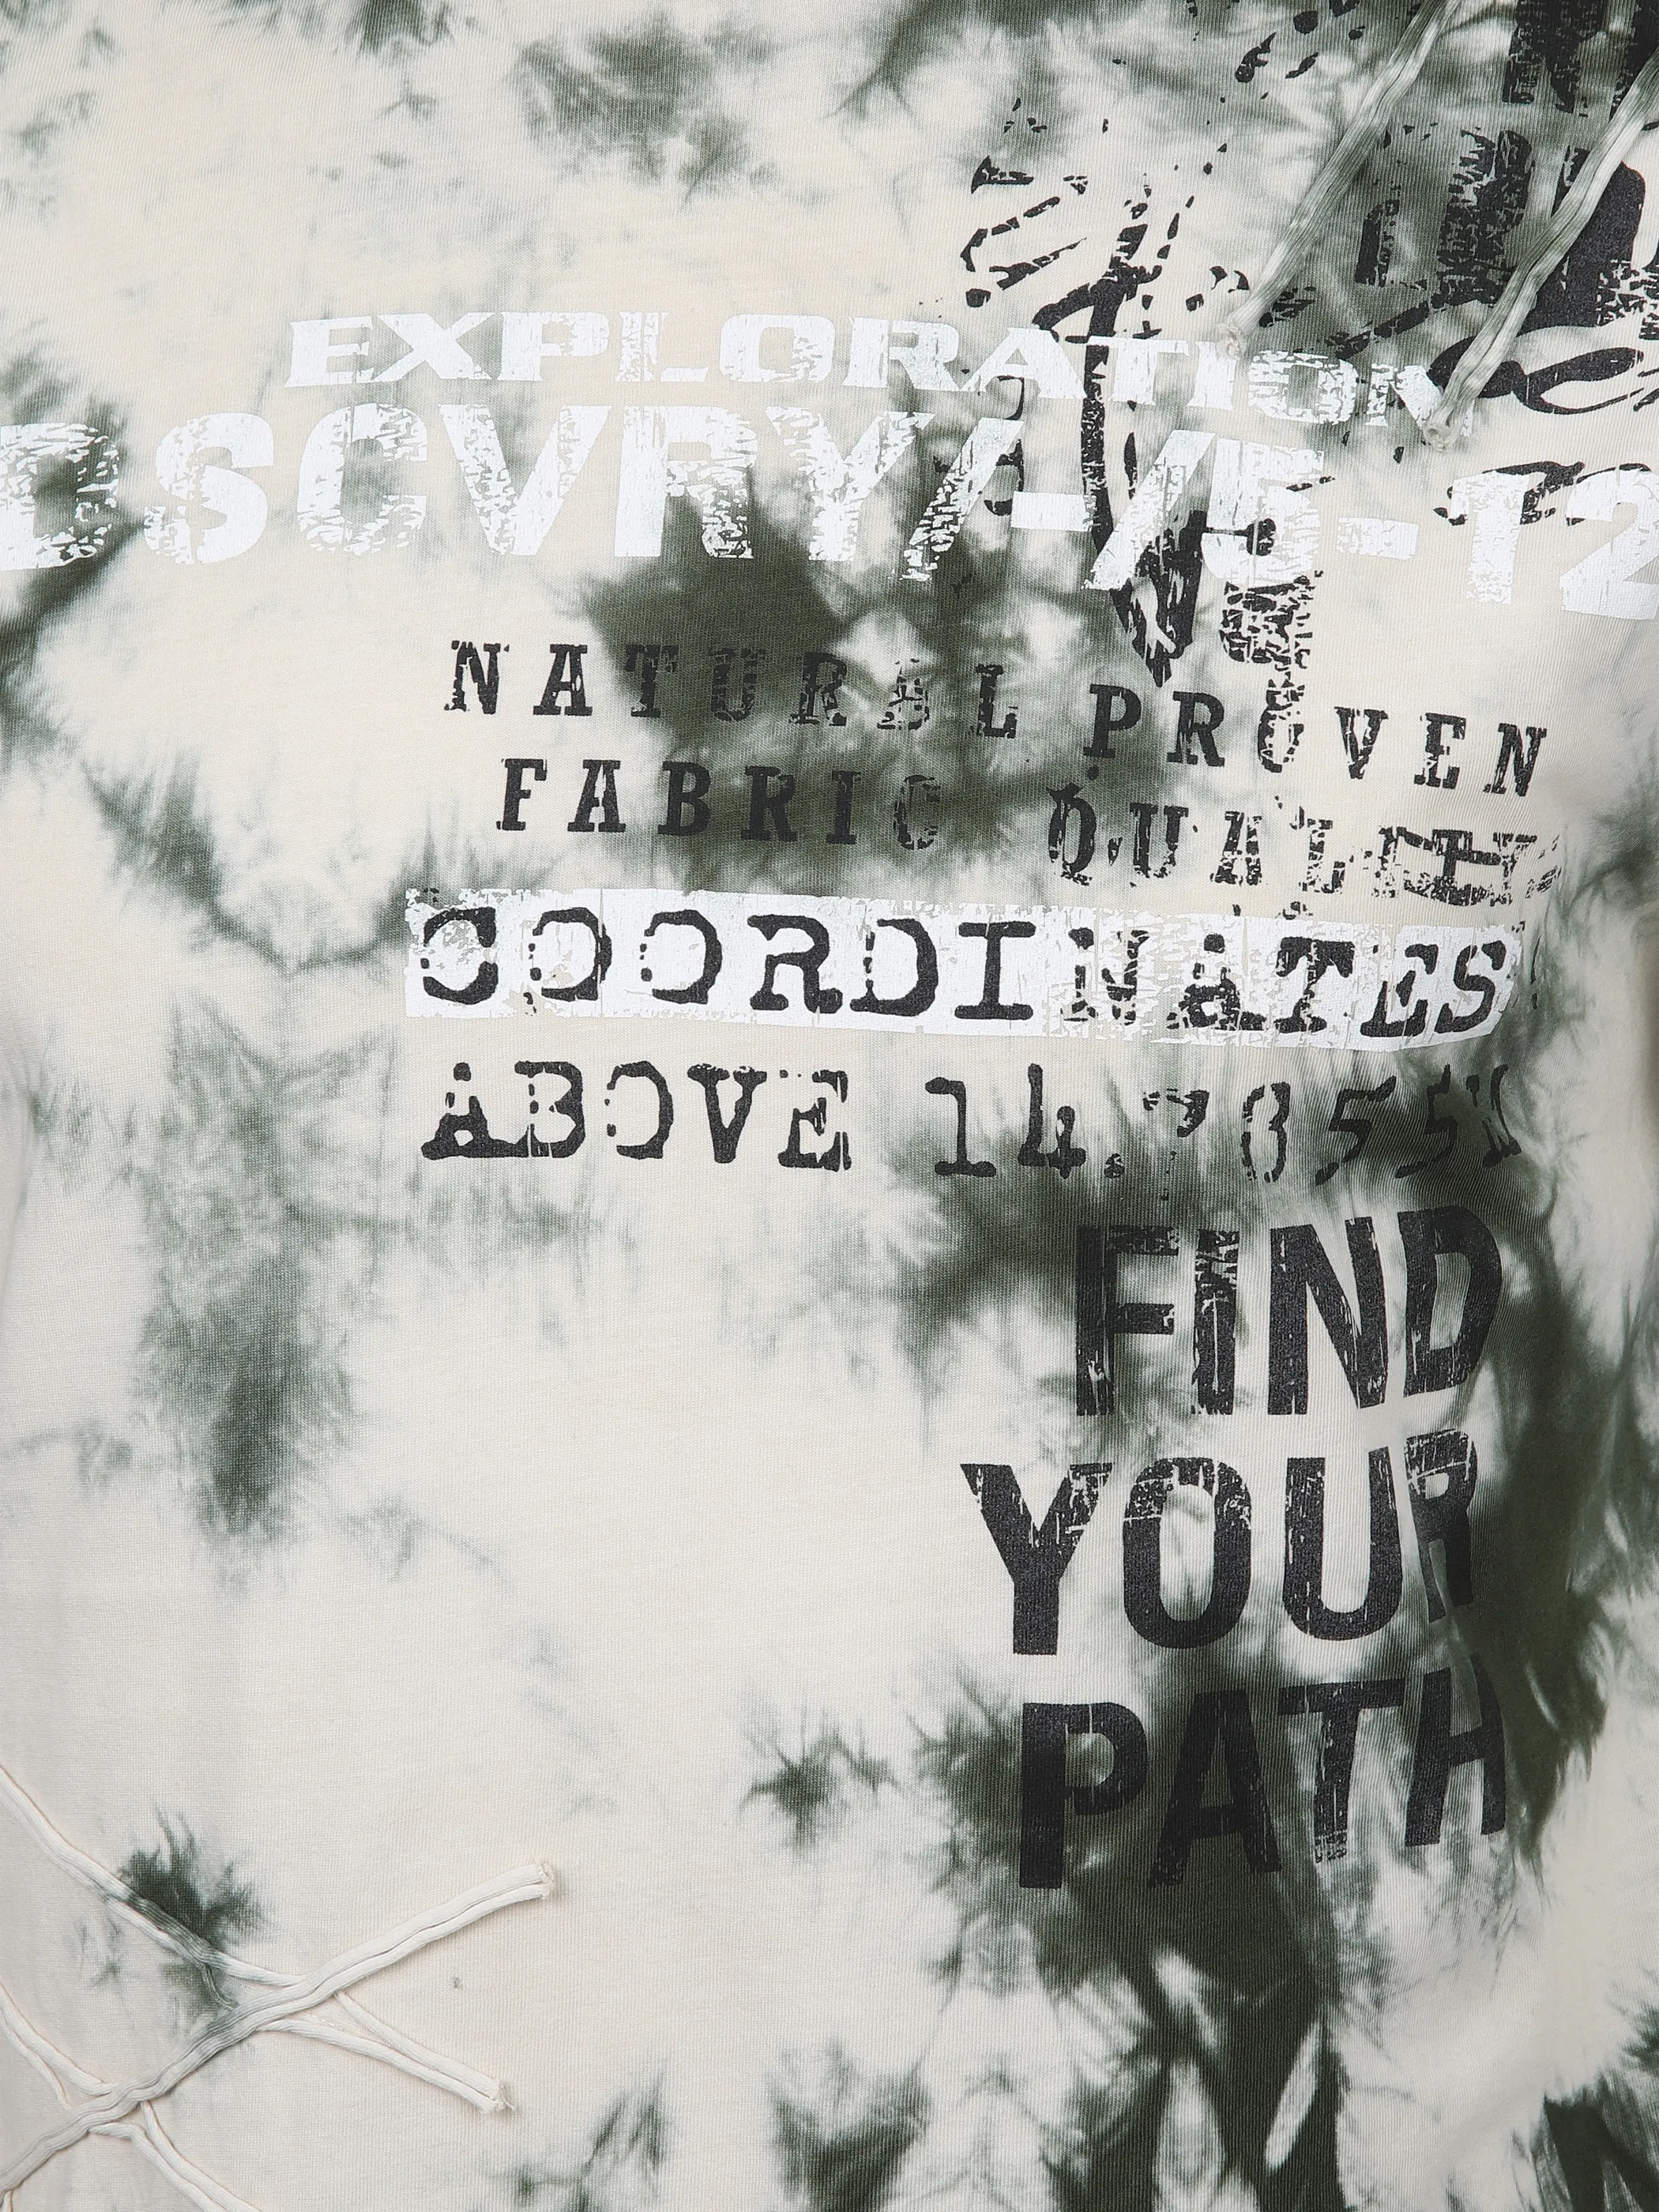 EXPLORATION
DSCVRY/-/5-T2
NATURAL PROVEN
FABRIC QUALITY
COORDINATES
ABOVE
FIND
YOUR
PATH